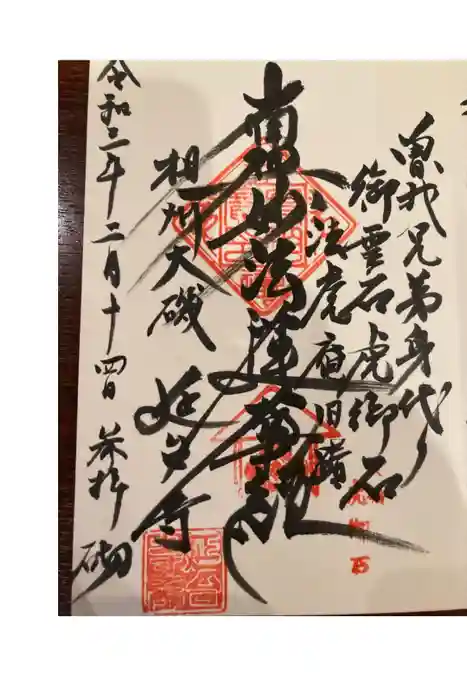 曽我兄弟身代り
御霊石虎御石
法虎庵旧蹟
南無妙法蓮華経
相州大磯
延台寺
令和三年二月十四日 参拝砌